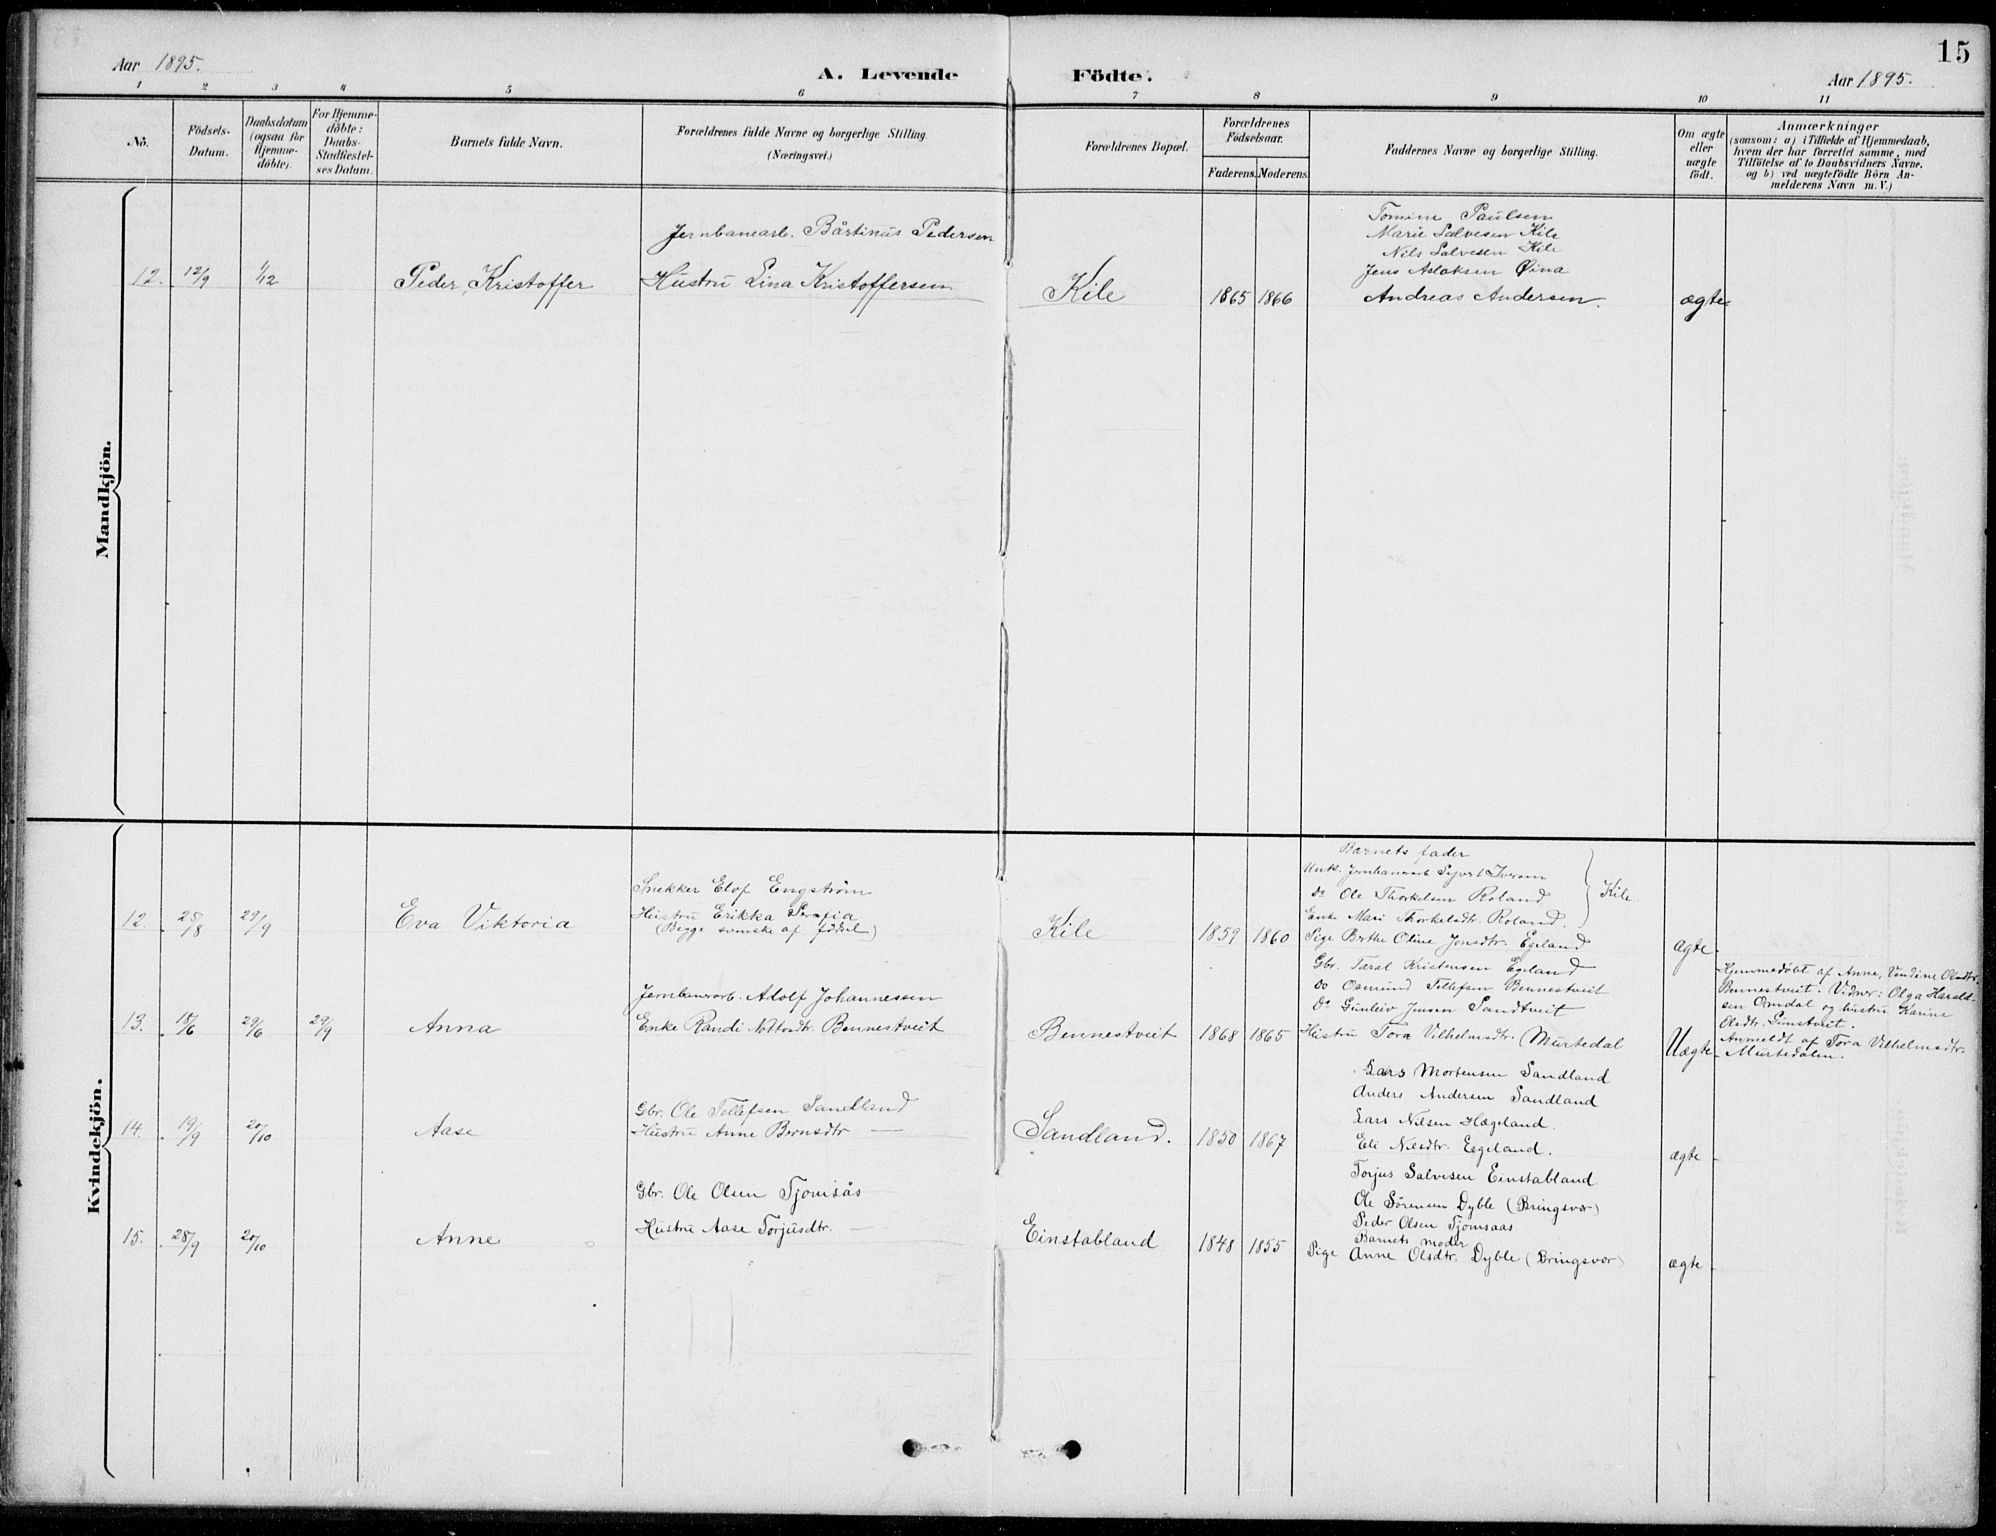 15
Aar 1895.
A. Levende Födte.
Aar 1895.
1 2 3 4 5 6 7 8 9 10 11
No.
Födsels-
Datum.
Daabsdatum
(ogsaa for
Hjemme-
döbte).
For Hjemme-
döbte:
Daabs-
Stadfæstel-
ses Datum.
Barnets fulde Navn.
Forældrenes fulde Navne og borgerlige Stilling
(Næringsvei.)
Forældrenes Bopæl.
Forældrenes
Födselsaar.
Faderens. Moderens.
Faddernes Navne og borgerlige Stilling.
Om ægte
eller
uægte
födt.
Anmærkninger
(saasom: a) i Tilfælde af Hjemmedaab,
hvem der har forrettet samme, med
Tilföielse af to Daabsvidners Navne,
og b) ved uægtefödte Börn An-
melderens Navn m. V.)
Mandkjön.
Jernbanearb. Bårtinus Pedersen
12. 12/9 1/12 Peder Kristoffer Hustru Lina Kristoffersen Kile 1865 1866
Tomine Paulsen
Marie Salvesen Kile
Nils Salvesen Kile
Jens Aslaksen Øina
Andreas Andersen. ægte
Kvindekjön.
Snekker Elof Engström
12. 25/8 29/9 Eva Viktoria Hustru Erikka Serafia
(Begge svenske af födsel) Kile 1859 1860
Barnets fader
Unk. Jernbanearb Sjvert Iversen
do Ole Thorkelsen Roland
Enke Mari Thorkelsdtr. Roland. Kile.
Pige Berthe Oline Jonsdtr. Egeland ægte
Jernbanearb. Adolf Johannessen
13. 15/6 29/6 29/9 Anna Enke Randi Bennestveit Bennestveit 1868 1865
Gbr. Taral Kristensen Egeland
do Osmund Tellefsen Bennestveit
do Gunleiv Jensen Sandtveit
Hustru Tora Vilhelmsdtr. Murtedal Uægte
Hjemmedöbt af Anne, Undine Olsdtr.
Bennestveit. Vidner: Olga Harald-
sen Omdal og hustru Karine
Olsdtr.
Anmeldt af Tora Vilhelmsdtr.
Murtedalen.
Gbr. Ole Tellefsen Sandland
14. 19/9 20/10 Aase Hustru Anne Bernsdtr — Sandland. 1850 1867
Lars Mortensen Sandland
Anders Andersen Sandland
Lars Nilsen Hægeland.
Eli Nilsdtr. Egeland. ægte
Gbr. Ole Olsen Tjomsås
15. 28/9 20/10 Anne Hustru Aase Torjusdtr. — Einstabland 1848 1855
Torjus Salvesen Einstabland
Ole Sörensen Dyble (Bringsvor)
Peder Olsen Tjomsaas
Barnets moder
Pige Anne Olsdtr. Dyble (Bringsvor) ægte